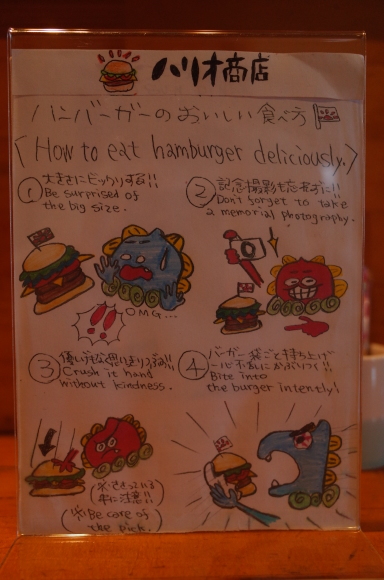 ハリオ商店
ハンバーガーのおいしい食べ方
「How to eat hamburger deliciously.」
① 大きさにビックリする!!
Be surprised of
the big size.
② 記念撮影も忘れずに!!
Don't forget to take
a memorial photography.
OMG...
!!
③
Crush it hand
without kindness.
④ バーガー袋ごと持ち上げ
一心不乱にかぶりつく!!
Bite into
the burger intently!
(※ささっている
串に注意!!)
(※Be care of
the pick.)